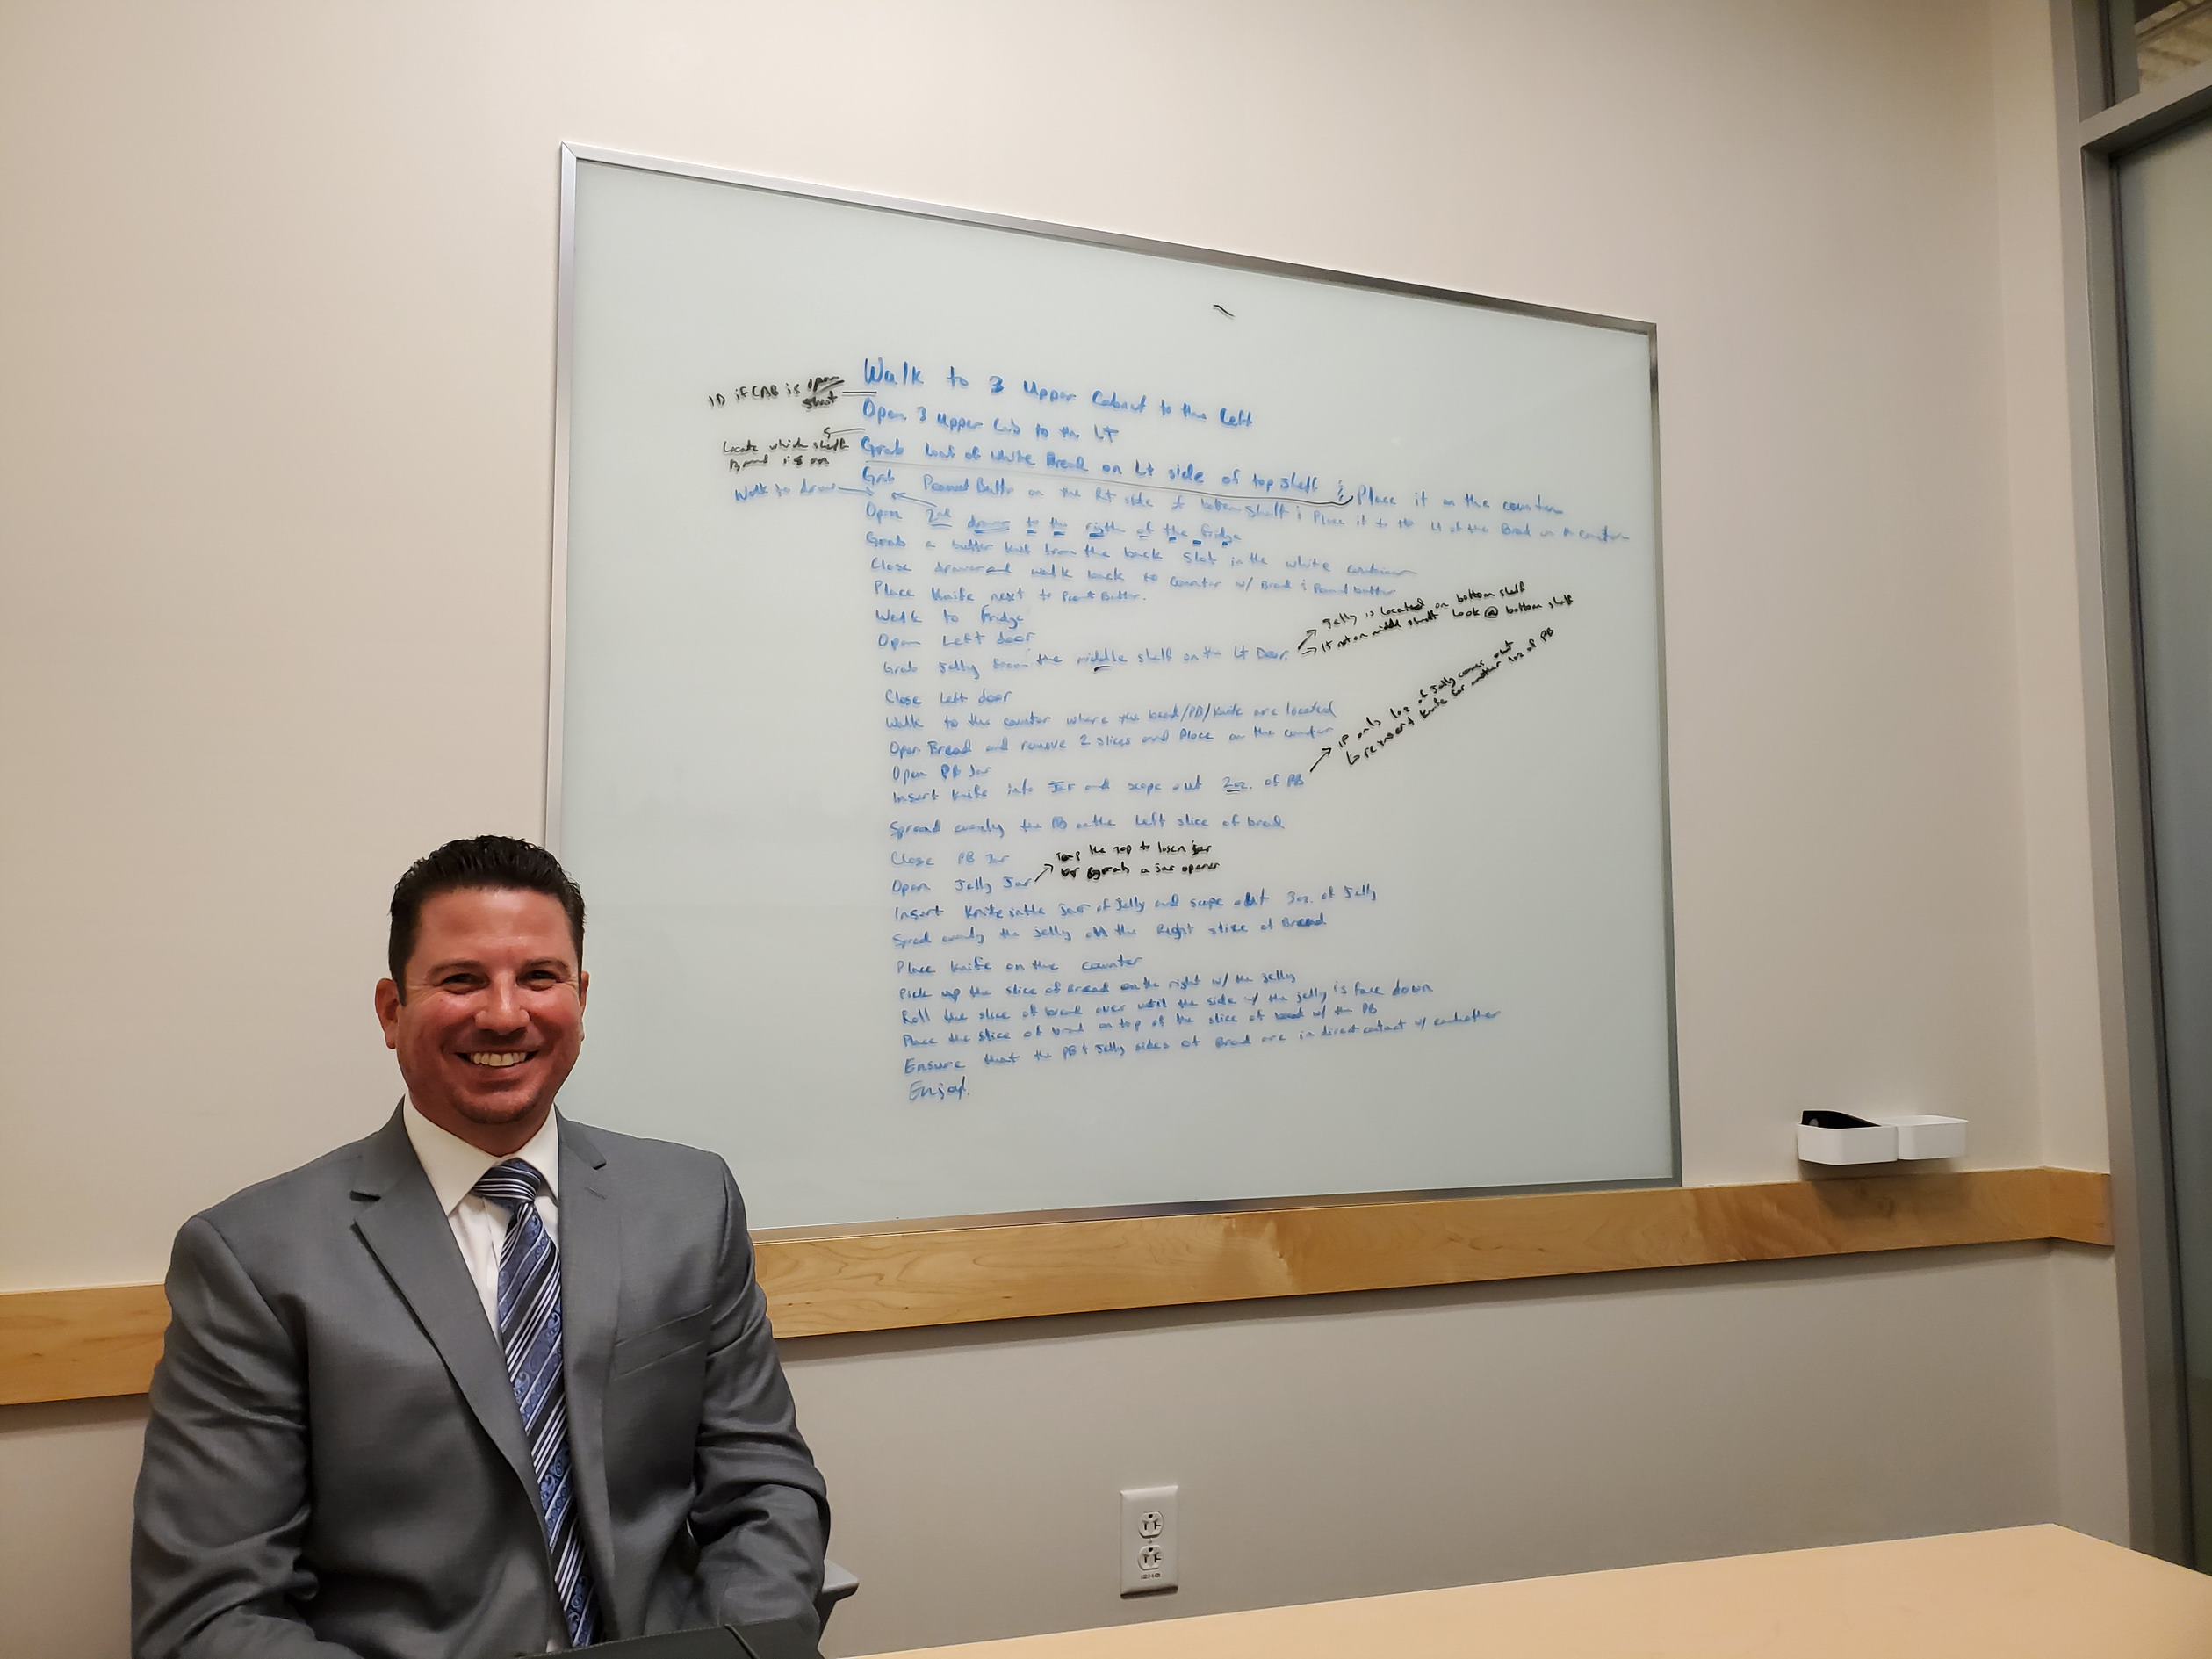 ID if CAB is open
shut
Walk to 3 Upper Cabnet to the Left
Open 3 Upper Cab to the LT
Locate which shelf
Bread is on
Grab loaf of White Bread on Lt side of top shelf & Place it on the counter
Walk to draw
Grab Peanut Buttr on the Rt side of bottom shelf & Place it to the Lt of the Bread on counter
Open 2nd drawer to the rigth of the fridge
Grab a butter knif from the back slot in the white container
Close drawer and walk back to counter w/ Bread & Peanut butter
Place Knife next to Peanut Butter.
Walk to Fridge
Open Left door
Grab Jelly from the middle shelf on the Lt Door.
Jelly is located on bottom shelf
If not on middle shelf Look @ bottom shelf
Close Left door
Walk to the counter where the bread/PB/Knife are located
Open Bread and remove 2 slices and Place on the counter
Open PB Jar
Insert knife into Jar and scope out 2oz. of PB
IF only 1oz of Jelly comes out
reinsert knife for another 1oz of PB
Spread evenly the PB on the Left slice of bread
Close PB Jar
Open Jelly Jar
Tap the top to losen jar
or grab a jar opener
Insert Knife in the jar of Jelly and scope out 3oz. of Jelly
Spred evenly the jelly on the Right slice of Bread
Place knife on the counter
Pick up the slice of Bread on the right w/ the jelly
Roll the slice of bread over until the side w/ the jelly is face down
Place the slice of bread on top of the slice of bread w/ the PB
Ensure that the PB & Jelly sides of Bread are in direct contact w/ eachother
Enjoy.